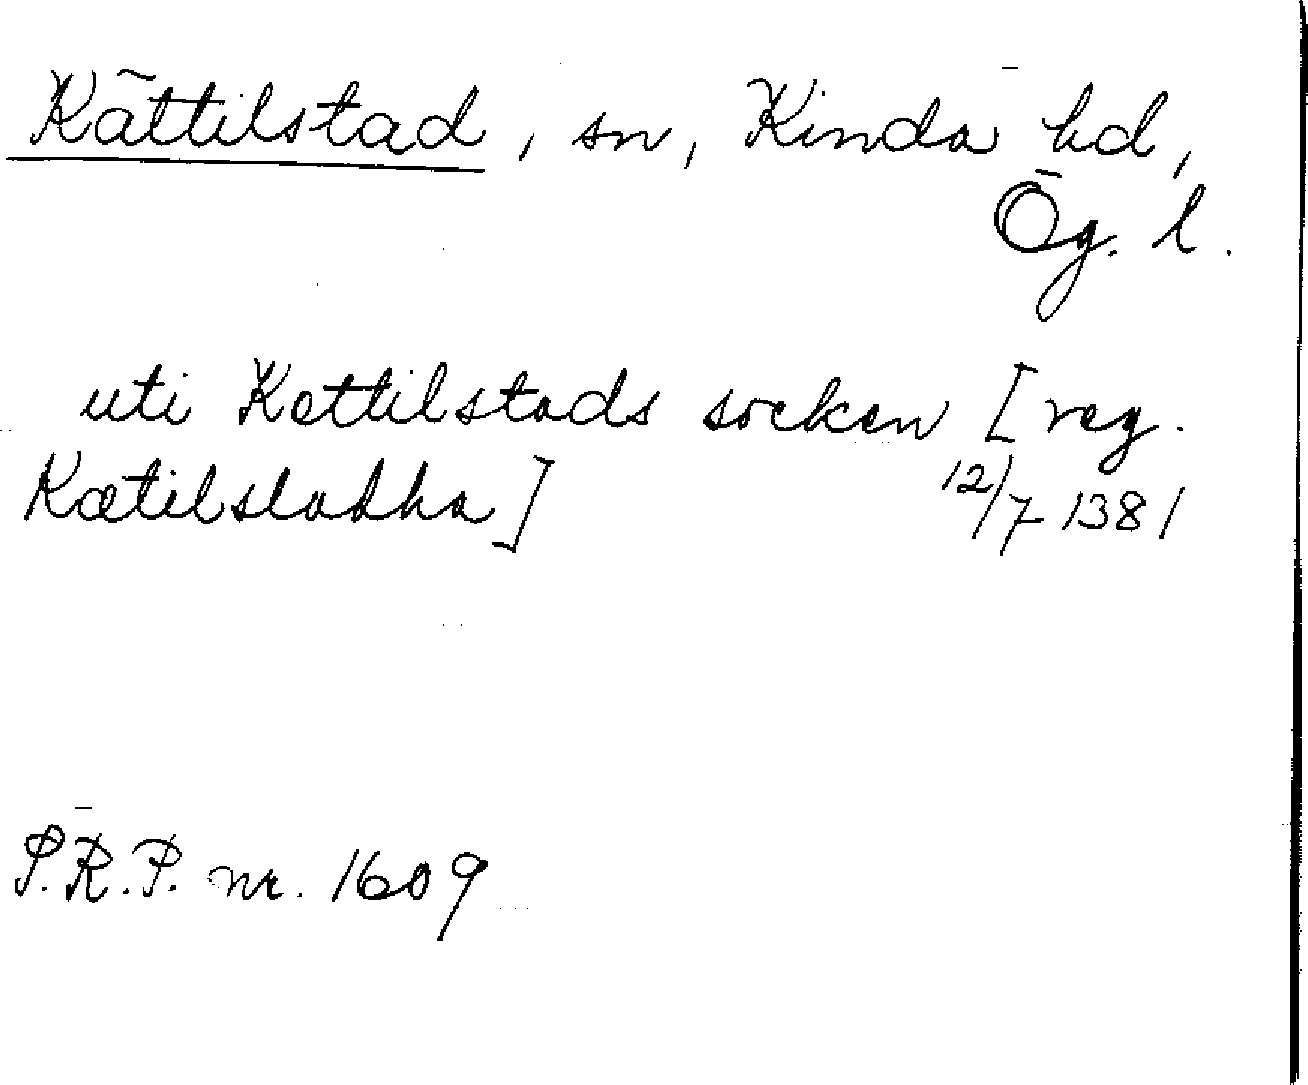 Kättilstad, sn, Kinda hd,
Ög. l.
uti Kettilstads socken [reg.
Kætilstadha] 12/7 1381
P.R.P. nr. 1609